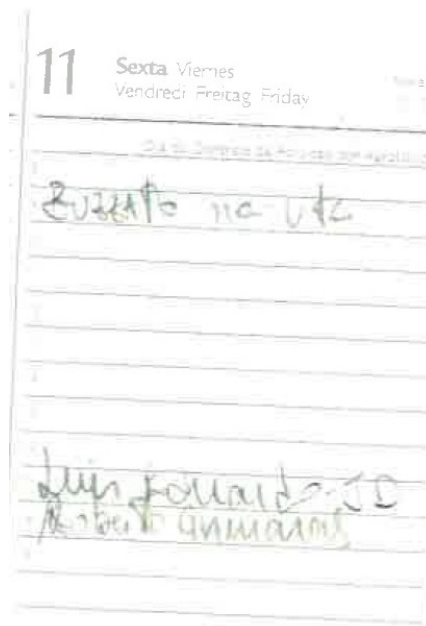 11 Sexta Viernes
Vendredi Freitag Friday
Dia do
Buzzatto na UTC
Luis Eduardo - JD
Roberto Guimarães